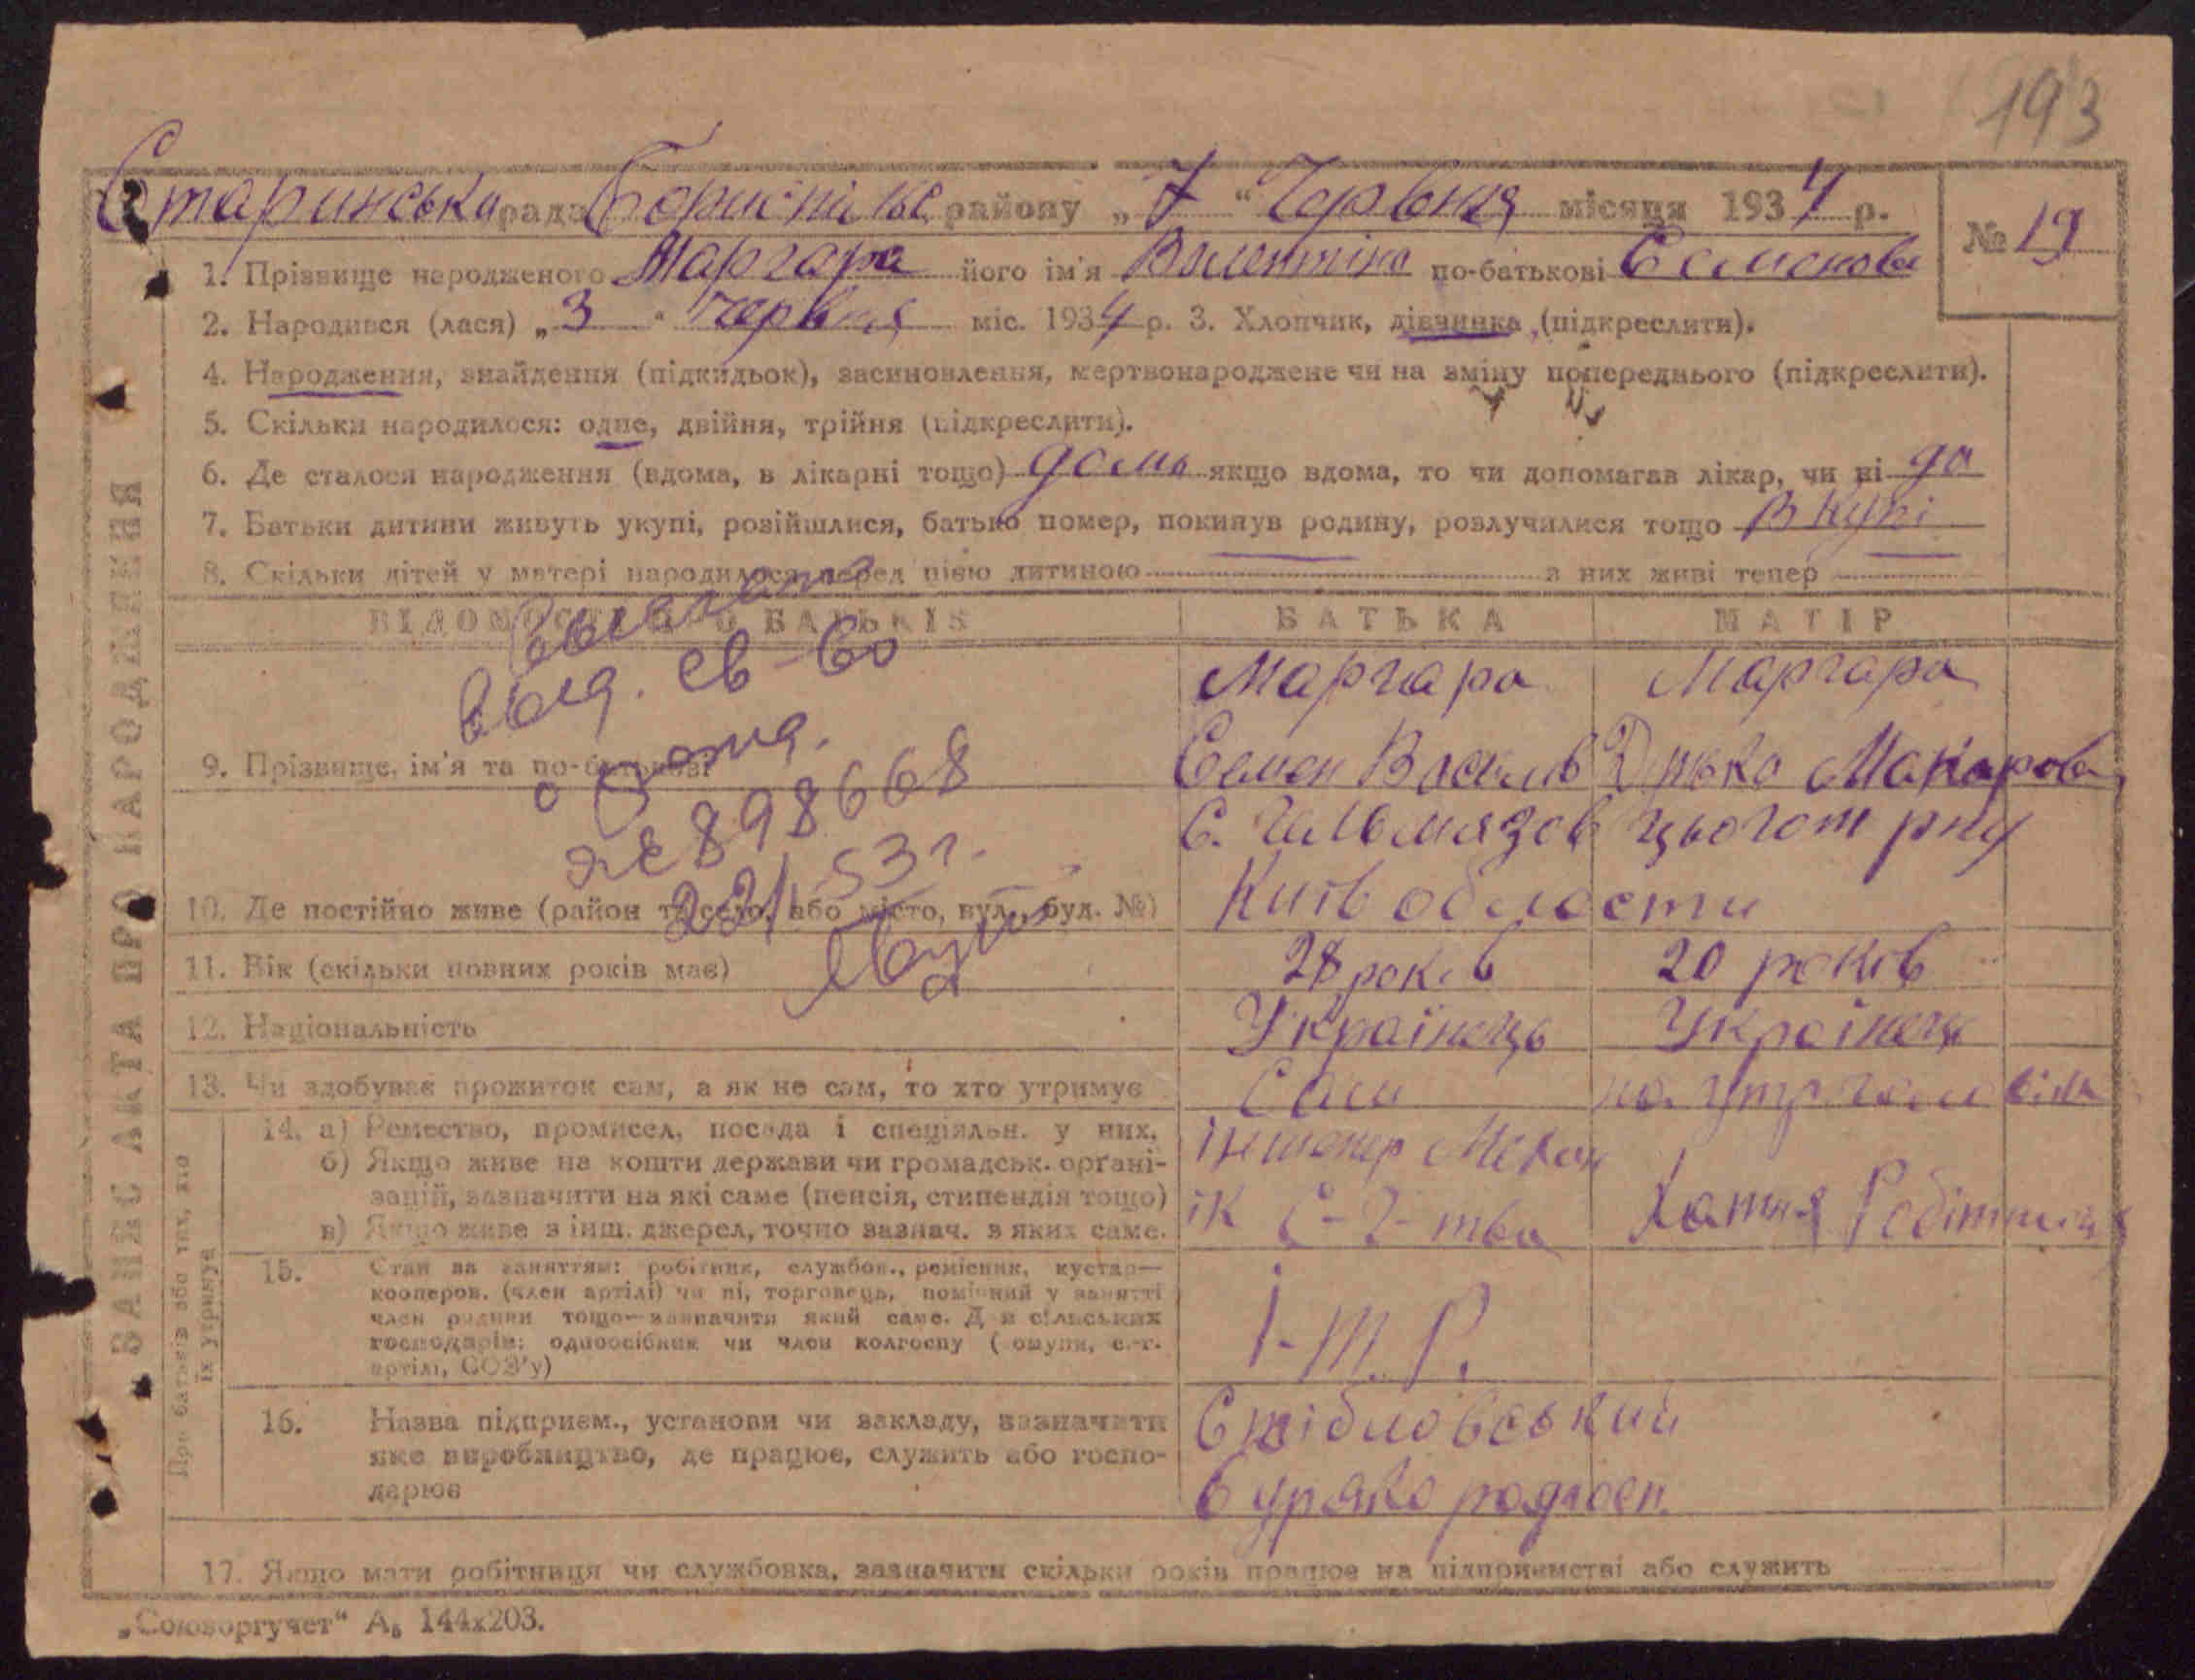 193
Старинська рада Бориспільс району „7“ Червня місяця 1934 р.
№ 19
1. Прізвище народженого Маргара його ім'я Валентина по-батькові Семенова
2. Народився (лася) „3“ червня міс. 1934 р. 3. Хлопчик, дівчинка, (підкреслити).
4. Народження, знайдення (підкидьок), засиновлення, мертвонароджене чи на зміну попереднього (підкреслити).
5. Скільки народилося: одне, двійня, трійня (підкреслити).
6. Де сталося народження (вдома, в лікарні тощо) дома якщо вдома, то чи допомагав лікар, чи ні да
7. Батьки дитини живуть укупі, розійшлися, батько помер, покинув родину, розлучилися тощо Вкупі
8. Скільки дітей у матері народилося перед цією дитиною — з них живі тепер —
ВІДОМОСТІ ПРО БАТЬКІВ БАТЬКА МАТІР
выд. св-во
о рожд.
898668
53 г.
9. Прізвище, ім'я та по-батькові Маргара Маргара
Семен Василів Макарова
10. Де постійно живе (район та село, або місто, вул., буд. №) с. Гельмязов цього рну
Київ области
11. Вік (скільки повних років має) 28 років 20 років
12. Національність Українець Українець
13. Чи здобуває прожиток сам, а як не сам, то хто утримує Сам на утриманні
При батьків або тих, хто їх утримує
14. а) Ремество, промисел, посада і спеціяльн. у них.
б) Якщо живе на кошти держави чи громадськ. організацій, зазначити на які саме (пенсія, стипендія тощо)
в) Якщо живе з інш. джерел, точно зазнач. з яких саме.
інженер Механ
ік с-г-тва Хатня Робітниця
15. Стан за заняттям: робітник, службов., ремісник, кустар—
кооперов. (член артілі) чи ні, торговець, помічний у занятті
член родини тощо—зазначити який саме. Для сільських
господарів: одноосібник чи член колгоспу (комуни, с.-г.
артілі, СОЗ'у)
І-Т.Р.
16. Назва підприєм., установи чи закладу, зазначити
яке виробництво, де працює, служить або госпо-
дарює
буряко радгосп.
17. Якщо мати робітниця чи службовка, зазначити скільки років працює на підприємстві або служить
ЗАПИС АКТА ПРО НАРОДЖЕННЯ
„Союзоргучет“ А₅ 144x203.